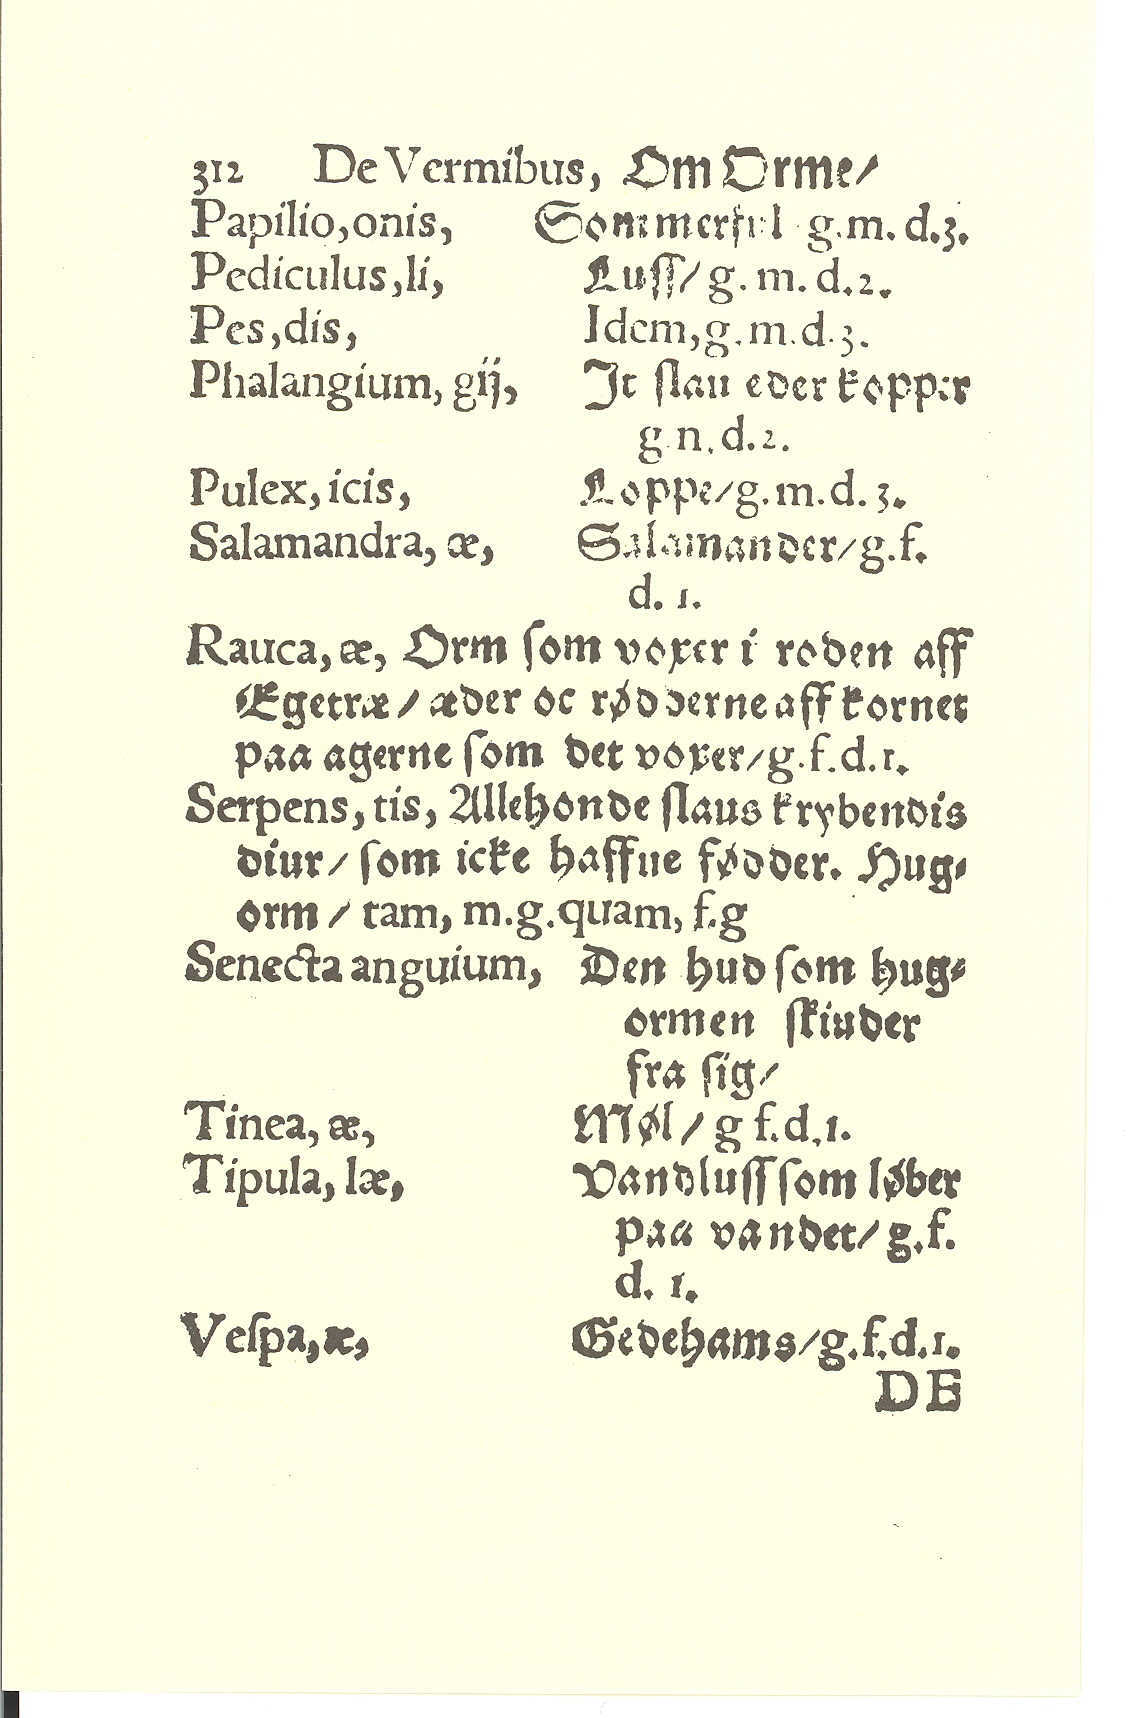 312 De Vermibus, Om Orme/
Papilio,onis, Sommerful g.m.d.3.
Pediculus,li, Luſſ/ g.m.d.2.
Pes,dis, Idem,g.m.d.3.
Phalangium, gij, It ſlau eder kopper
g.n.d.2.
Pulex,icis, Loppe/g.m.d.3.
Salamandra, æ, Salamander/g.f.
d. 1.
Rauca, æ, Orm ſom voxer i roden aff
Egetræ/ æder oc rødderne aff kornet
paa agerne ſom det voxer/g.f.d.1.
Serpens, tis, Allehonde ſlaus krybendis
diur/ ſom icke haffue fødder. Hug⸗
orm/ tam, m.g.quam, f.g
Senecta anguium, Den hud ſom hug⸗
ormen ſkiuder
fra ſig/
Tinea, æ, Møl/ g f.d.1.
Tipula, læ, Vandluſſ ſom løber
paa vandet/ g.f.
d. 1.
Veſpa,æ, Gedehams/g.f.d.1.
DE